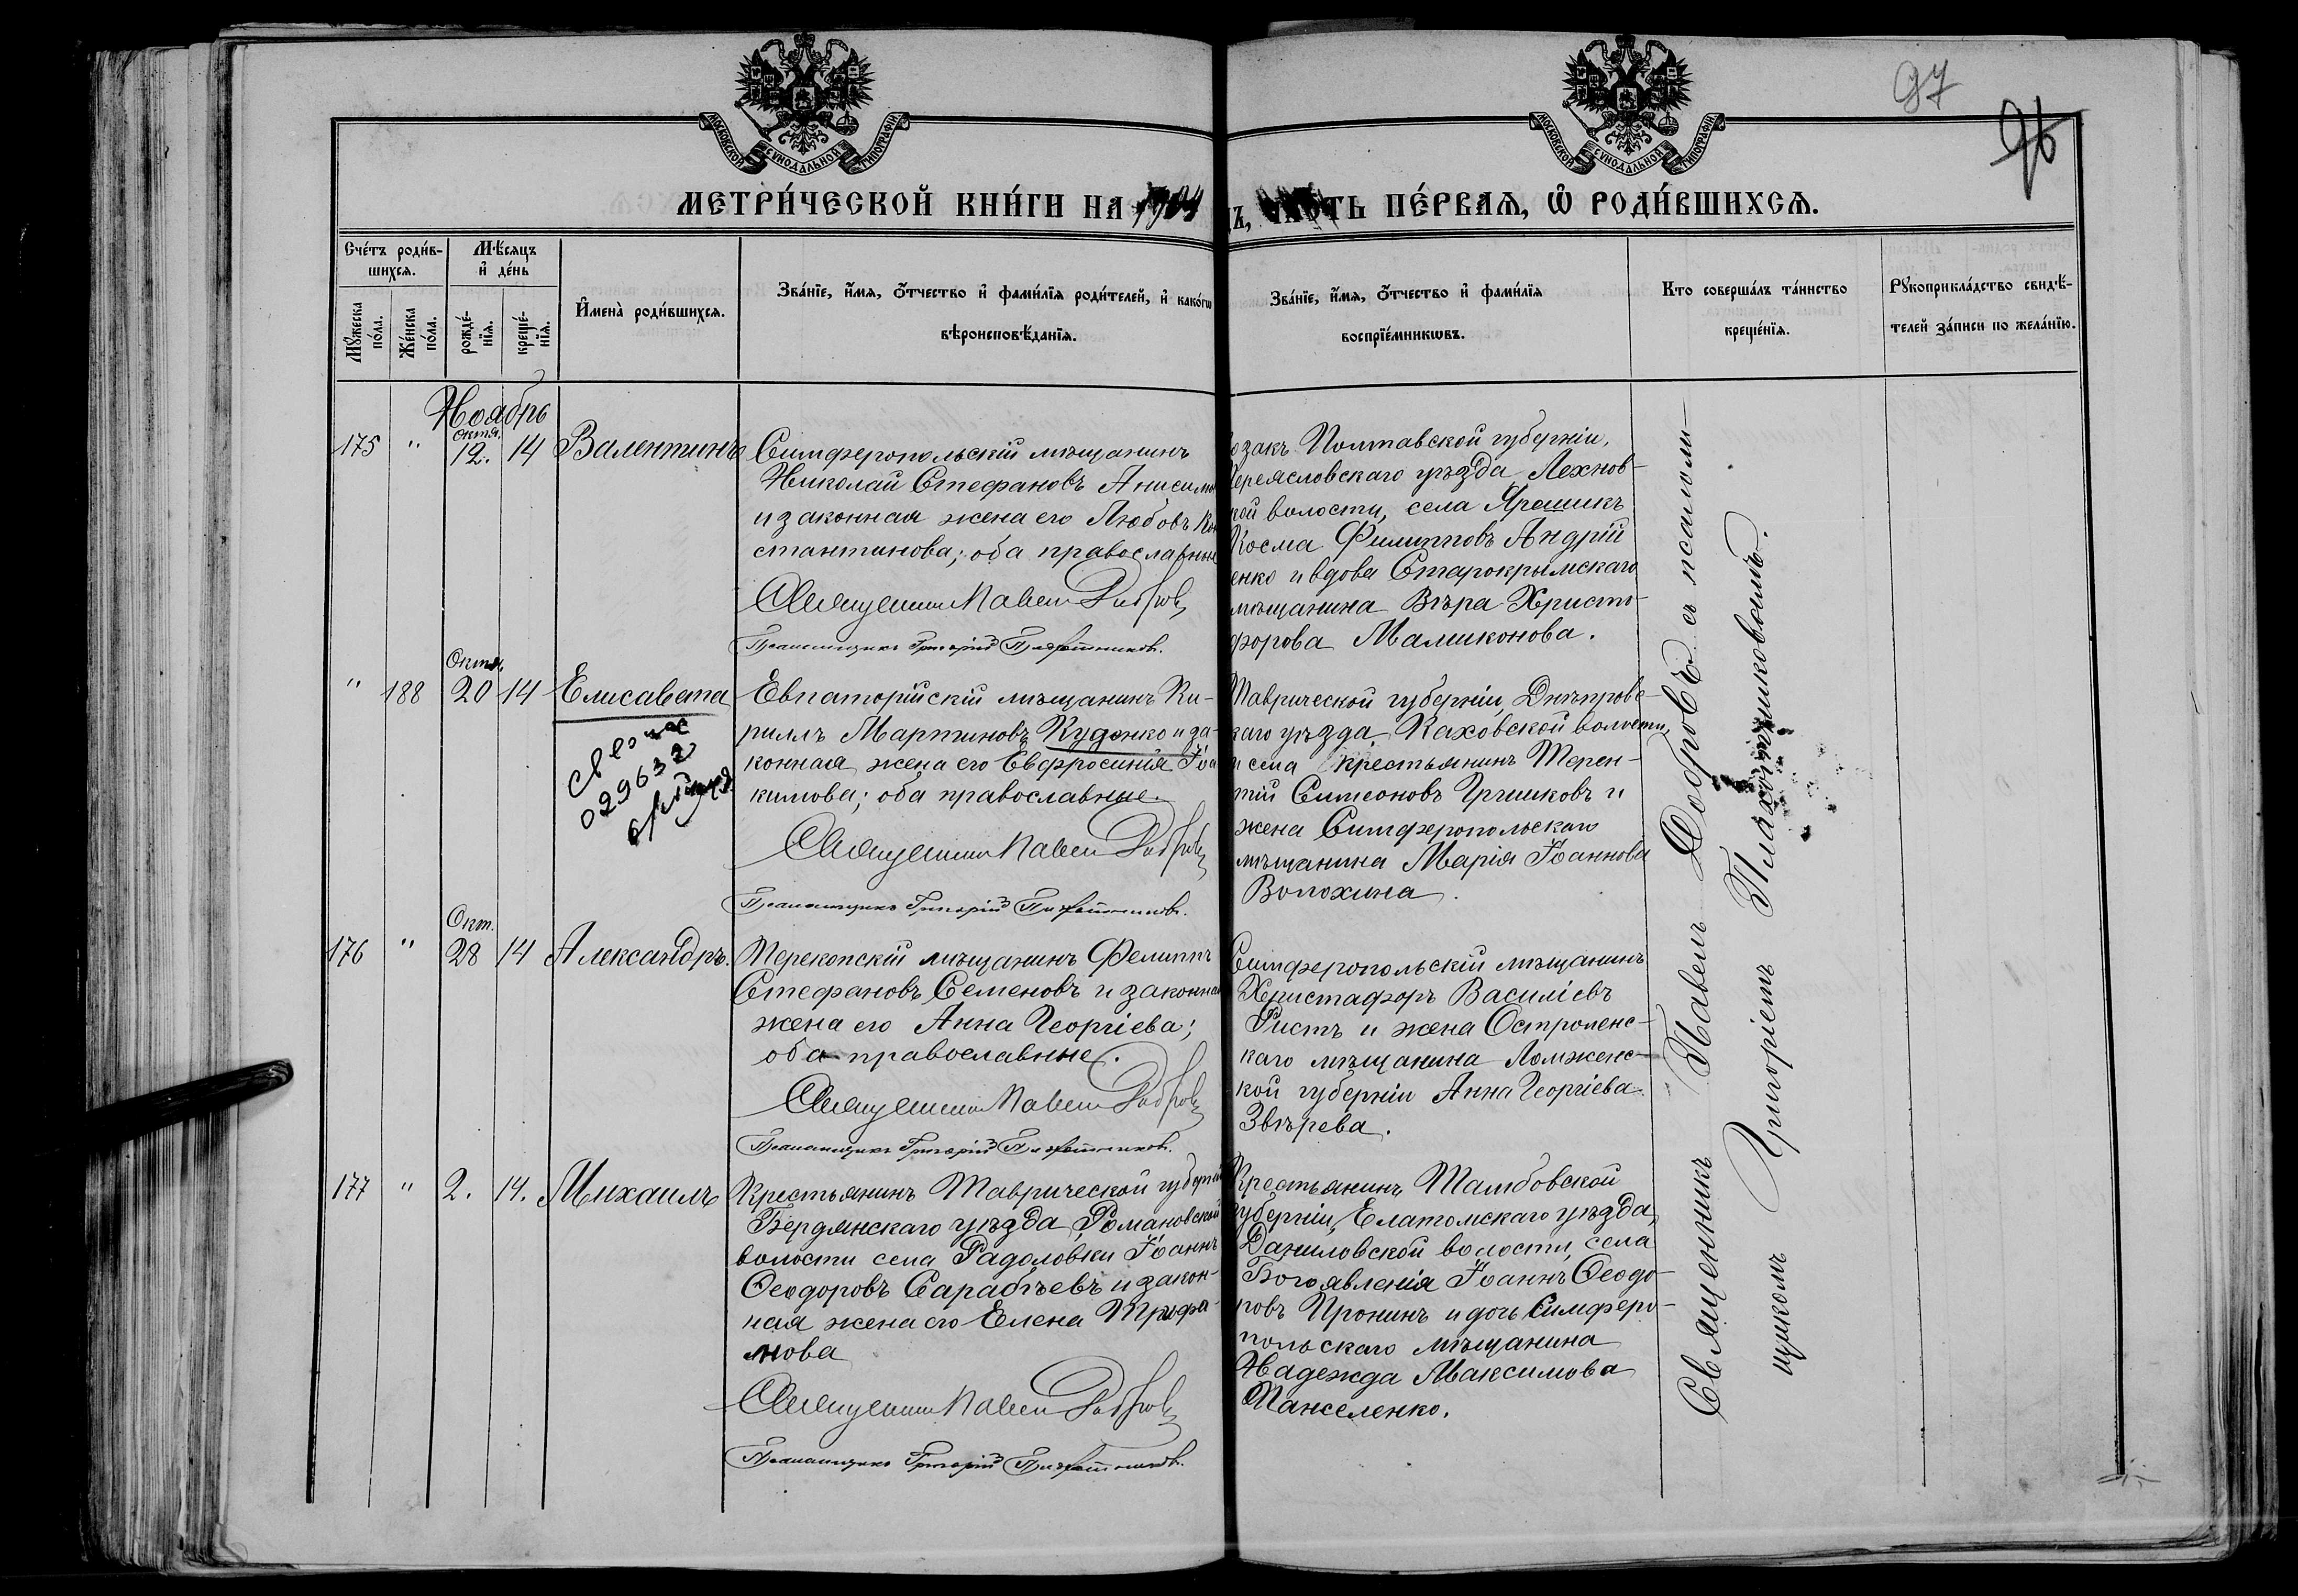 МОСКОВСКОЙ СѴНОДАЛЬНОЙ ТИПОГРАФІИ
МОСКОВСКОЙ СѴНОДАЛЬНОЙ ТИПОГРАФІИ
97
96
МЕТРИ́ЧЕСКОЙ КНИ́ГИ НА 1904
ЧАСТЬ ПЕ́РВАЯ, Ѡ РОДИ́ВШИХСѦ.
Сче́тъ роди́в-
шихсѧ.
Мѣ́сѧцъ
и҆ де́нь
Мꙋ́жеска
по́ла.
Же́нска
по́ла.
рожде́-
нїѧ.
креще́-
нїѧ.
И҆мена̀ роди́вшихсѧ.
Зва́нїе, и҆́мѧ, ѻ҆́тчество и҆ фами́лїѧ роди́телей, и҆ како́гѡ
вѣроисповѣ́данїѧ.
Зва́нїе, и҆́мѧ, ѻ҆́тчество и҆ фами́лїѧ
воспрїе́мникѡвъ.
Кто соверша́лъ та́инство
креще́нїѧ.
Рꙋкоприкла́дство свидѣ́-
телей за́писи по жела́нїю.
Ноябрь
Октя.
175 " 12. 14 Валентинъ
Симферопольскій мѣщанинъ
Николай Стефановъ Анисимо
и законная жена его Любовь Кон
стантинова; оба православные
Священникъ Павелъ Добровъ
Псаломщикъ Григорій Плахотниковъ.
озакъ Полтавской губерніи,
Переясловскаго уѣзда, Лехнов-
кой волости, села Ярешикъ
Косма Филипповъ Андрій
енко и вдова Старокрымскаго
мѣщанина Вѣра Христо-
форова Мамиконова.
Октя.
" 188 20 14 Елисавета
029632
Евпаторійскій мѣщанинъ Ки-
риллъ Мартиновъ Куденко и за-
конная жена его Евфросинія Іоа
кимова; оба православные.
Священникъ Павелъ Добровъ
Псаломщикъ Григорій Плахотниковъ.
Таврической губерніи, Днѣпровс-
каго уѣзда, Каховской волости,
и села крестьянинъ Терен-
тій Симеоновъ Гришковъ и
жена Симферопольскаго
мѣщанина Марія Іоаннова
Волохина.
Окт.
176 " 28 14 Александръ.
Перекопскій мѣщанинъ Филиппъ
Стефановъ Семеновъ и законная
жена его Анна Георгіева;
оба православные.
Священникъ Павелъ Добровъ
Псаломщикъ Григорій Плахотниковъ.
Симферопольскій мѣщанинъ
Христафоръ Василіевъ
Ристъ и жена Остроленс-
каго мѣщанина Ломженс-
кой губерніи Анна Георгіева
Звѣрева.
177 " 2. 14. Михаилъ
Крестьянинъ Таврической губерніи
Бердянскаго уѣзда, Романовской
волости села Радоловки Іоаннъ
Ѳеодоровъ Сарабѣевъ и закон-
ная жена его Елена Трофи-
мова
Священникъ Павелъ Добровъ
Псаломщикъ Григорій Плахотниковъ.
Крестьянинъ Тамбовской
губерніи, Елатомскаго уѣзда,
Даниловской волости, села
Богоявленія Іоаннъ Ѳеодо-
ровъ Пронинъ и дочь Симферо-
польскаго мѣщанина
Надежда Максимова
Панселенко.
Священникъ Павелъ Добровъ съ псалом-
щикомъ Григоріемъ Плахотниковымъ.